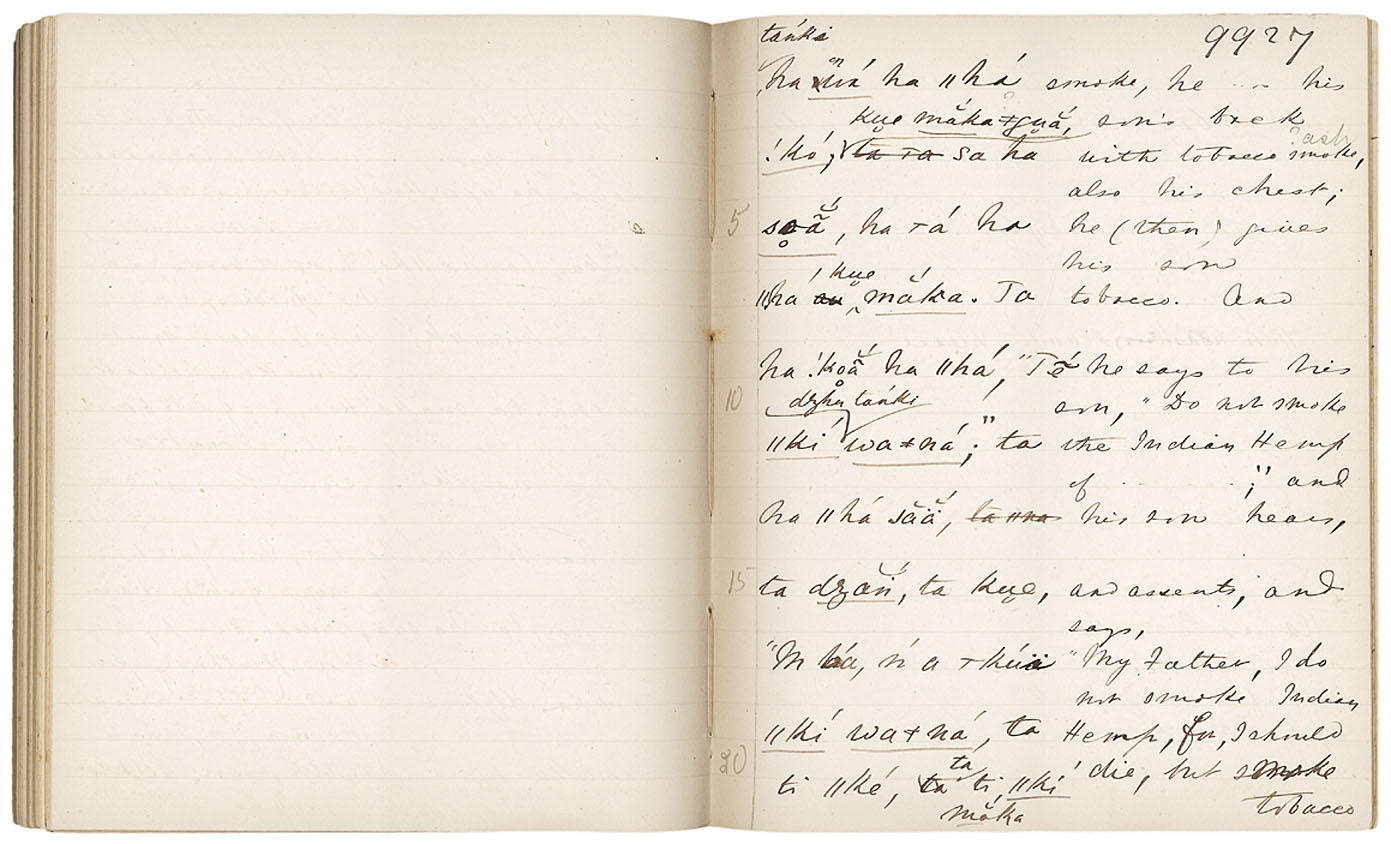 tańki 9927
ha ŋwá ha ‖há smoke, he ... his
kụe mắka≠guá, son's back
!kó; ta ta sa ha with tobacco smoke, ? ash
also his chest;
5 soä̆́, ha ⊤á ha he (then) gives
his son
‖há au kụe mắka. Ta tobacco. And
ha !koä̆́ ha ‖há, "Té̃ he says to his
10 dzhu tańki son, "Do not smoke
‖kí wa≠ná"; ta the Indian Hemp
of ... ;" and
ha ‖há săä́, ta ‖na his son hears,
15 ta dzăń, ta kụe, and assents; and
says,
"M bá, ń a ⊤kúä "My Father, I do
not smoke Indian
‖kí wa≠ná, ta Hemp, for, I should
20 ti ‖ké, ta ta ti, ‖kí die, but smoke
măka tobacco